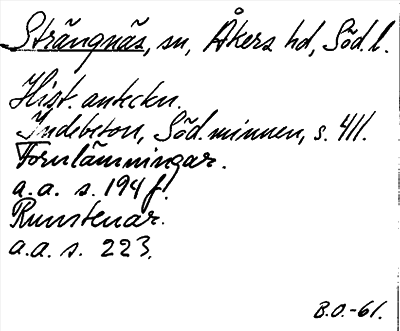 Strängnäs, sn, Åkers hd, Söd. l.
Hist. anteckn.
Indebetou, Söd. minnen, s. 411.
Fornlämningar.
a.a. s. 194 f.
Runstenar.
a.a. s. 223.
B.O.-61.